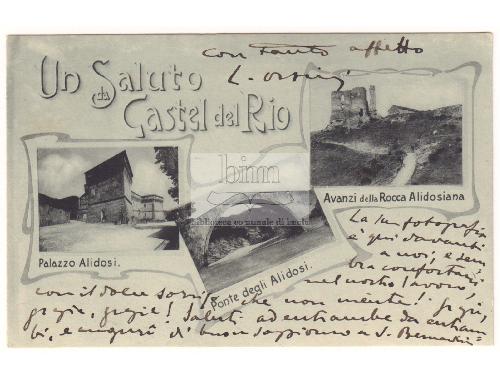 con tanto affetto
L. Orsini
Un Saluto
da
Castel del Rio
bim
biblioteca comunale di imola
Palazzo Alidosi.
Ponte degli Alidosi.
Avanzi della Rocca Alidosiana
La sua fotografia
è qui davanti
a noi, e sem
bra confortarci
nel nostro lavoro,
con il dolce sorriso che non mente! Grazie,
grazie, grazie! Saluti ad entrambe da entram
bi, e auguri di buon soggiorno a S. Bernardino